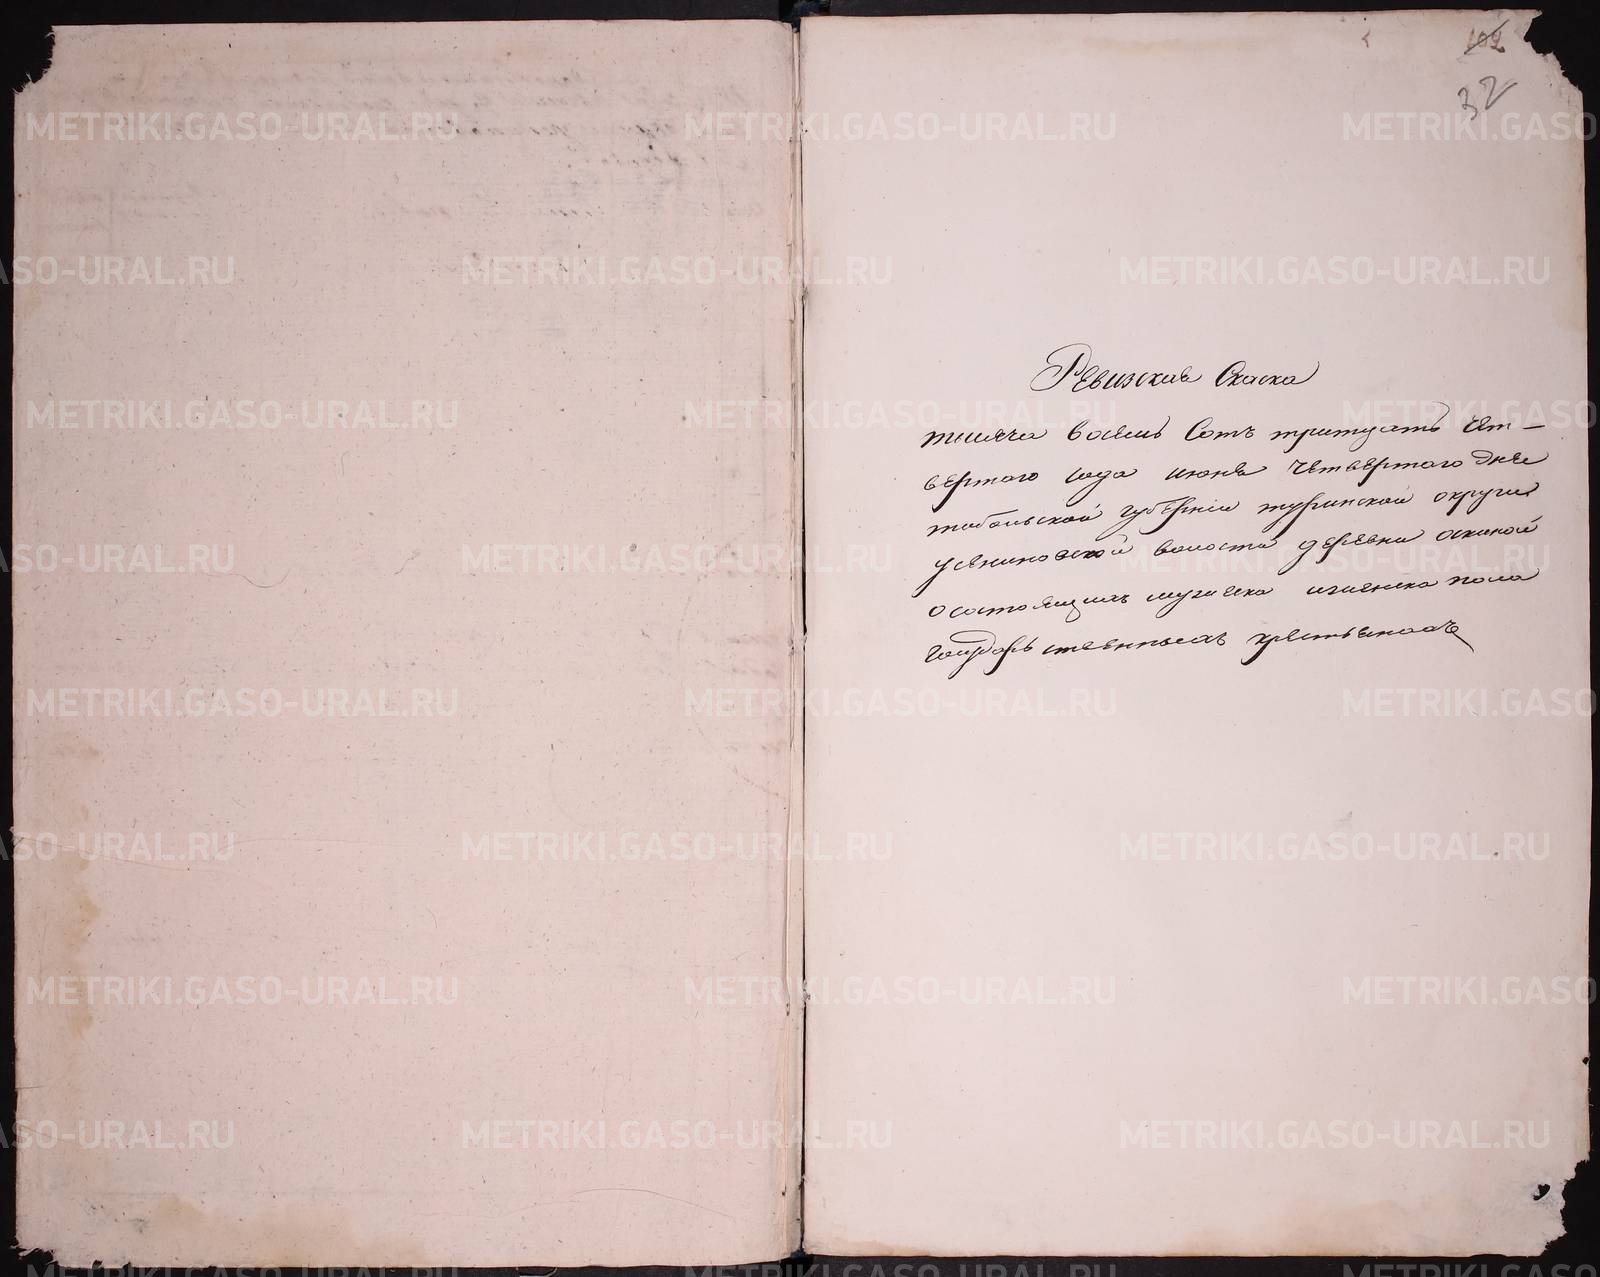 102
32
Ревизская Скаска
тысяча восемь Сотъ тритцать чет-
вертого года июня четвертого дня
тобольской губернии туринской округи
усениновской волости деревни оскиной
осостоящихъ мужеска иженска пола
государственныхъ крестьянахъ
METRIKI.GASO-URAL.RU